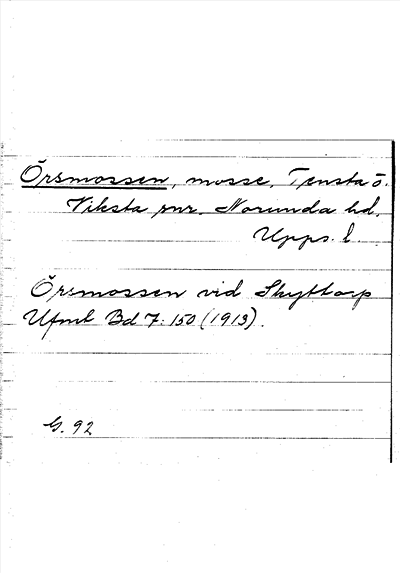 Örsmossen, mosse, Tensta o.
Viksta snr. Norunda hd.
Upps. l.
Örsmossen vid Skyttorp
Ufmt Bd 7: 150 (1913).
G. 92